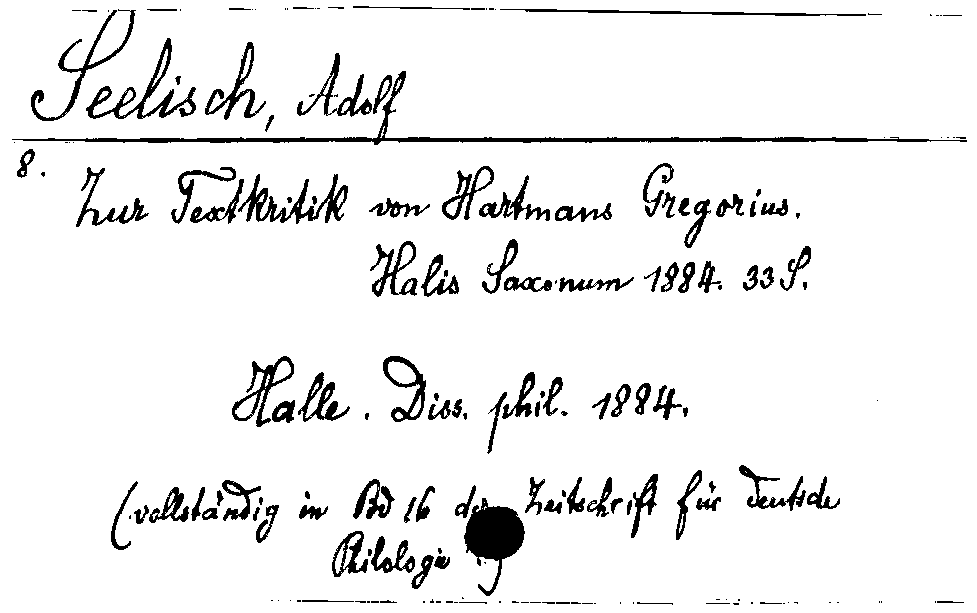 Seelisch, Adolf
8.
Zur Textkritik von Hartmans Gregorius.
Halis Saxonum 1884. 33 S.
Halle. Diss. phil. 1884.
(vollständig in Bd 16 der Zeitschrift für deutsche
Philologie.)